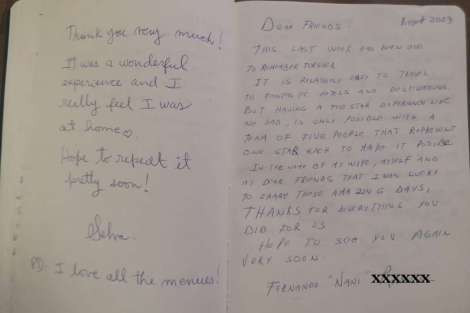 Thank you very much!
It was a wonderful
experience and I
really feel I was
at home.
Hope to repeat it
pretty soon!
Selva.
PD: I love all the menues!
Dear Friends: August 2023
THIS LAST WEEK HAS BEEN ONE
TO REMEMBER FOREVER
IT IS RELATIVELY EASY TO TRAVEL
TO FANTASTIC HOTELS AND DESTINATIONS.
BUT HAVING A FIVE STAR EXPERIENCE LIKE
WE HAD, IS ONLY POSSIBLE WITH A
TEAM OF FIVE PEOPLE THAT REPRESENT
ONE STAR EACH TO MAKE IT POSSIBLE
IN THE NAME OF MY WIFE, MYSELF AND
MY DEAR FRIENDS THAT I WAS LUCKY
TO SHARE THOSE AMAZING DAYS,
THANKS FOR EVERYTHING YOU
DID FOR US
HOPE TO SEE YOU AGAIN
VERY SOON.
FERNANDO "NANI" XXXXXX